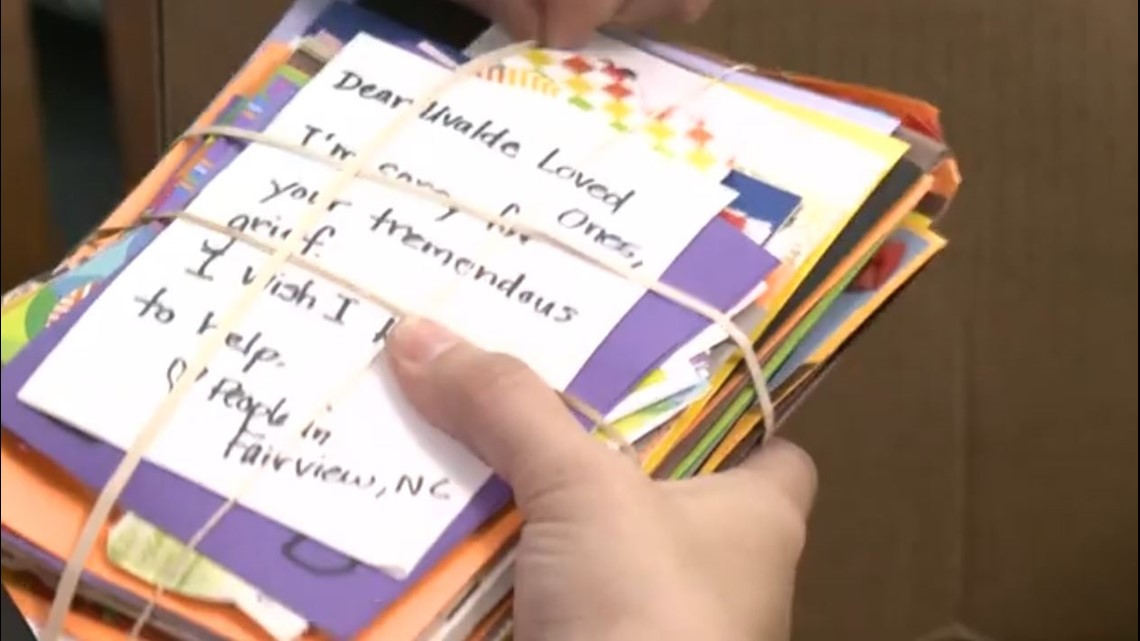 Dear Uvalde Loved
Ones,
I'm sorry for
your tremendous
grief.
I wish I
to help.
♡ People in
Fairview, NC